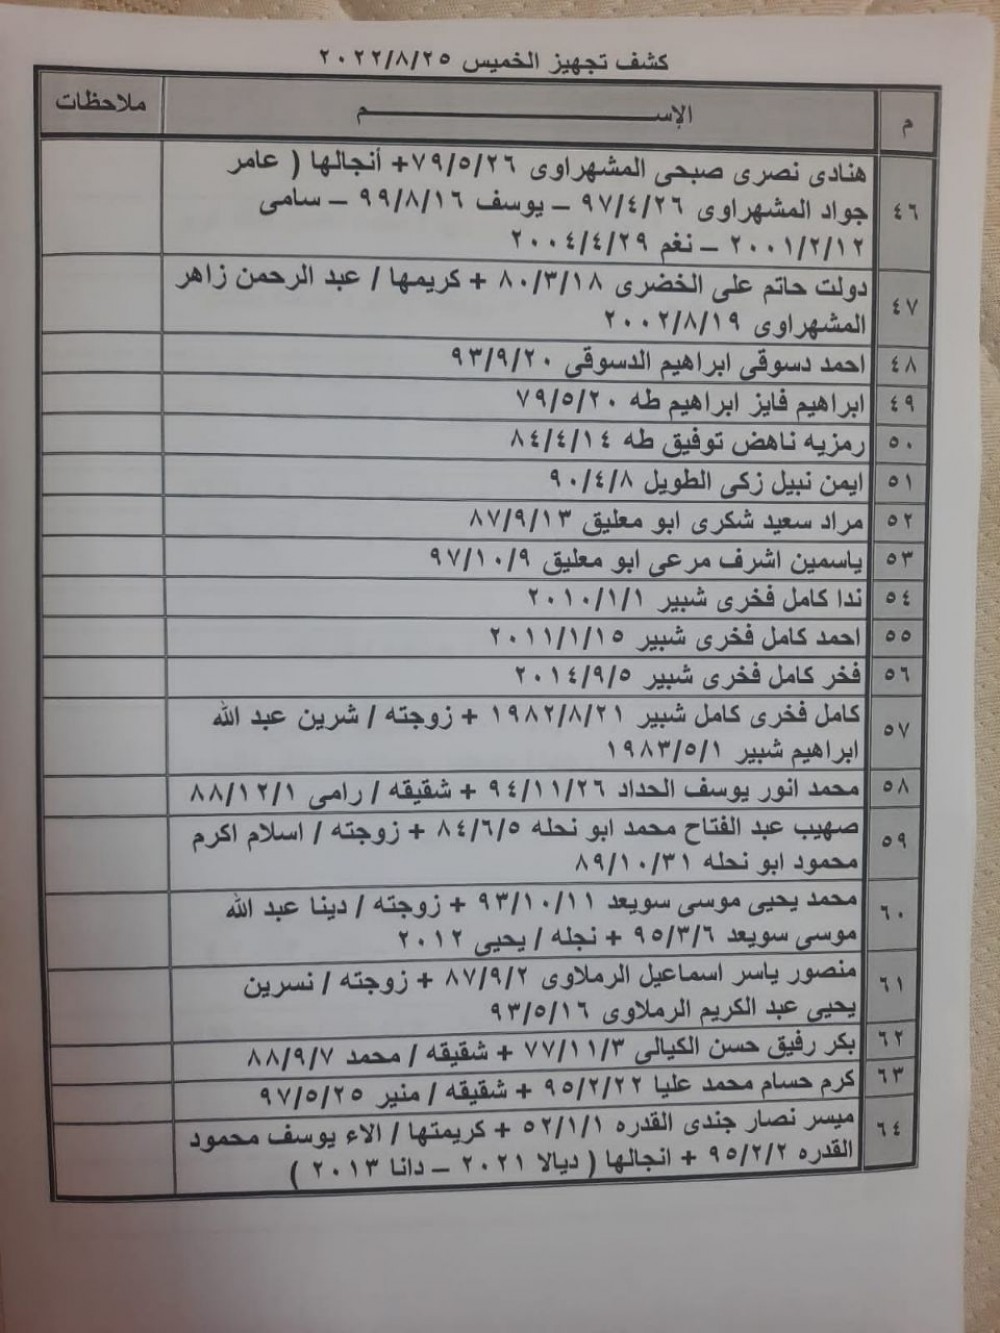 كشف تجهيز الخميس ٢٠٢٢/٨/٢٥
م الإســـــــــــــــــــم ملاحظات
٤٦ هنادى نصرى صبحى المشهراوى ٧٩/٥/٢٦+ أنجالها ( عامر
جواد المشهراوى ٩٧/٤/٢٦ – يوسف ٩٩/٨/١٦ – سامى
٢٠٠١/٢/١٢ – نغم ٢٠٠٤/٤/٢٩
٤٧ دولت حاتم على الخضرى ٨٠/٣/١٨ + كريمها / عبد الرحمن زاهر
المشهراوى ٢٠٠٢/٨/١٩
٤٨ احمد دسوقى ابراهيم الدسوقى ٩٣/٩/٢٠
٤٩ ابراهيم فايز ابراهيم طه ٧٩/٥/٢٠
٥٠ رمزيه ناهض توفيق طه ٨٤/٤/١٤
٥١ ايمن نبيل زكى الطويل ٩٠/٤/٨
٥٢ مراد سعيد شكرى ابو معليق ٨٧/٩/١٣
٥٣ ياسمين اشرف مرعى ابو معليق ٩٧/١٠/٩
٥٤ ندا كامل فخرى شبير ٢٠١٠/١/١
٥٥ احمد كامل فخرى شبير ٢٠١١/١/١٥
٥٦ فخر كامل فخرى شبير ٢٠١٤/٩/٥
٥٧ كامل فخرى كامل شبير ١٩٨٢/٨/٢١ + زوجته / شرين عبد الله
ابراهيم شبير ١٩٨٣/٥/١
٥٨ محمد انور يوسف الحداد ٩٤/١١/٢٦ + شقيقه / رامى ٨٨/١٢/١
٥٩ صهيب عبد الفتاح محمد ابو نحله ٨٤/٦/٥ + زوجته / اسلام اكرم
محمود ابو نحله ٨٩/١٠/٣١
٦٠ محمد يحيى موسى سويعد ٩٣/١٠/١١ + زوجته / دينا عبد الله
موسى سويعد ٩٥/٣/٦ + نجله / يحيى ٢٠١٢
٦١ منصور ياسر اسماعيل الرملاوى ٨٧/٩/٢ + زوجته / نسرين
يحيى عبد الكريم الرملاوى ٩٣/٥/١٦
٦٢ بكر رفيق حسن الكيالى ٧٧/١١/٣ + شقيقه / محمد ٨٨/٩/٧
٦٣ كرم حسام محمد عليا ٩٥/٢/٢٢ + شقيقه / منير ٩٧/٥/٢٥
٦٤ ميسر نصار جندى القدره ٥٢/١/١ + كريمتها / الاء يوسف محمود
القدره ٩٥/٢/٢ + انجالها ( ديالا ٢٠٢١ – دانا ٢٠١٣ )